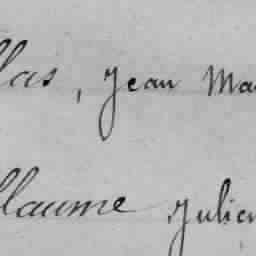 llas, Jean Ma
llaume Julien